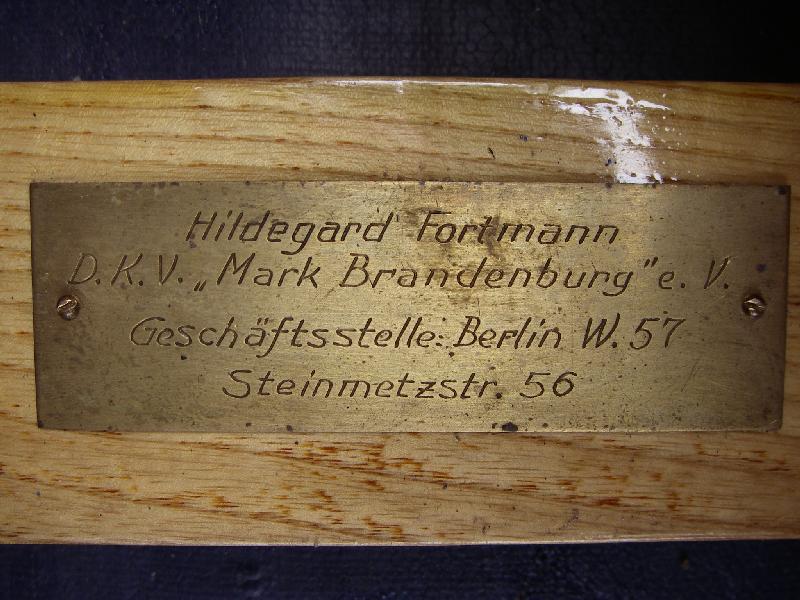 Hildegard Fortmann
D.K.V. „Mark Brandenburg" e. V.
Geschäftsstelle: Berlin W. 57
Steinmetzstr. 56